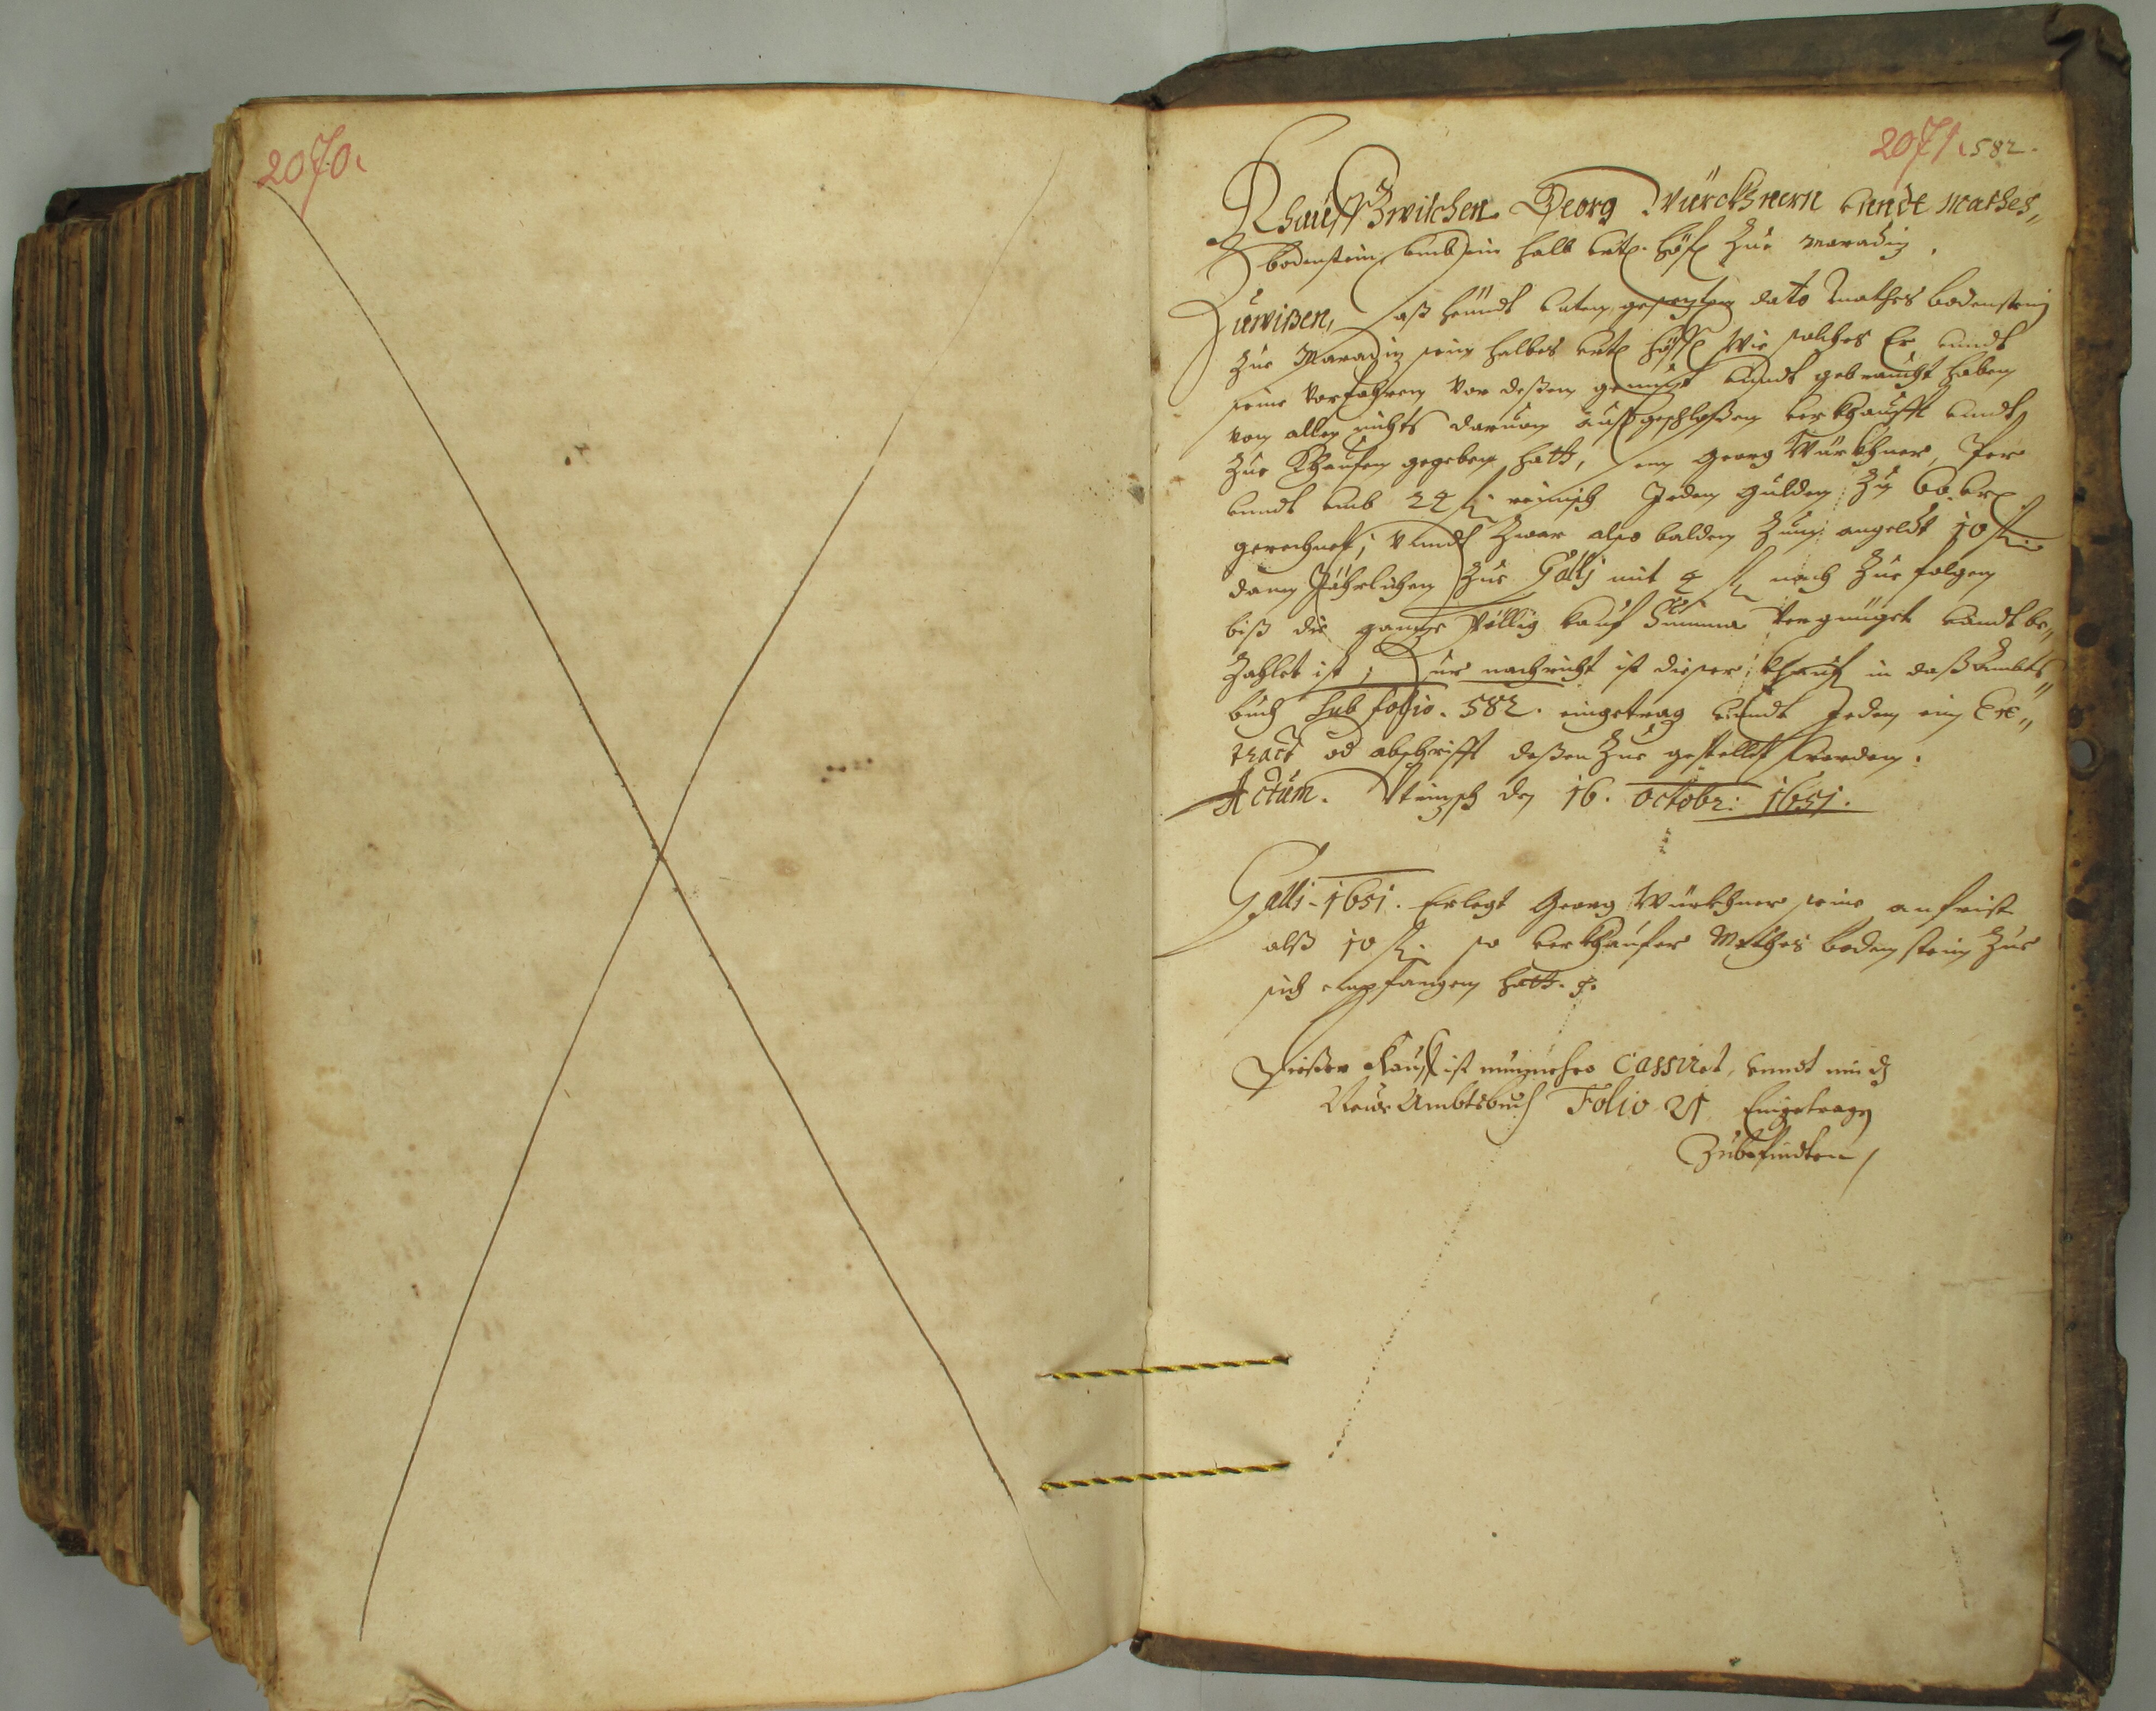 2070.
2071. 582.
Khauff Zwischen Georg Würckhnern unndt Mathes„
bodenstein, umb ein halb virtl. höfl Zue Marading.
Zuwißen, daß heündt untengesezten dato Mathes bodenstein
Zue Marading sein halbes virtl höffl wie solches Er unndt
seine Vorfahren vor deßen genuzt unndt gebraucht haben
von allen nichts daruon außgeschloßen verkhaufft unndt
Zue Khaufen gegeben hatt, dem Georg Würkhner, Per
unndt umb 24 fl. reinisch Jeden gulden Zu 60. kr.
gerechnet, Unndt Zwar also balden Zum angeldt 10 fl.
dann Jährlichen Zue Galli mit 4 fl. nach Zue folgen
biß die ganze Völlig kauf Summa Vergnügt unndt be„
Zahlet ist, Zur nachricht ist dieser khauf in daß Ambts„
buch sub folio. 582. eingetrag unndt Jedem ein Ex„
tract od abschrifft deßen Zue gestellet worden.
Actum. den 16. Octobr: 1651.
Galli 1651. Erlegt Georg Würkhner seine anfrist
alß 10 fl. so verkhaufer Mathes bodenstein Zue
sich empfangen hatt.
Dießer Kauff ist nunmehro Cassiret, unndt ins
Neue Ambtsbuch Folio 21 Eingetragen
Zubefindten /